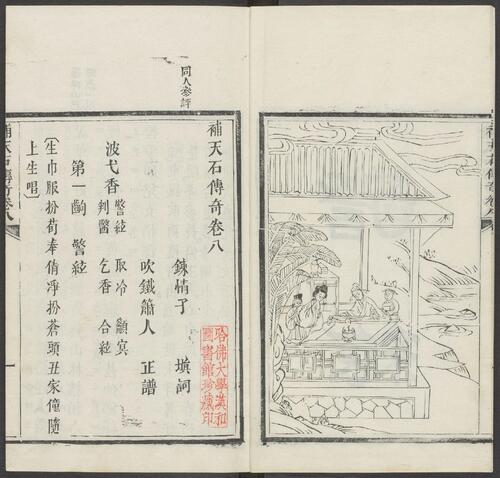 補天石傳奇卷八
鍊情子 填詞
吹鐵簫人 正譜
波弋香 警絃 取冷 顲寞
判醫 乞香 合絃
第一齣 警絃
〔生巾服扮荀奉倩淨扮蒼頭丑家僮隨
上生唱〕
同人參評
哈佛大學漢和
圖書館珍藏印
補天石傳奇卷八
一